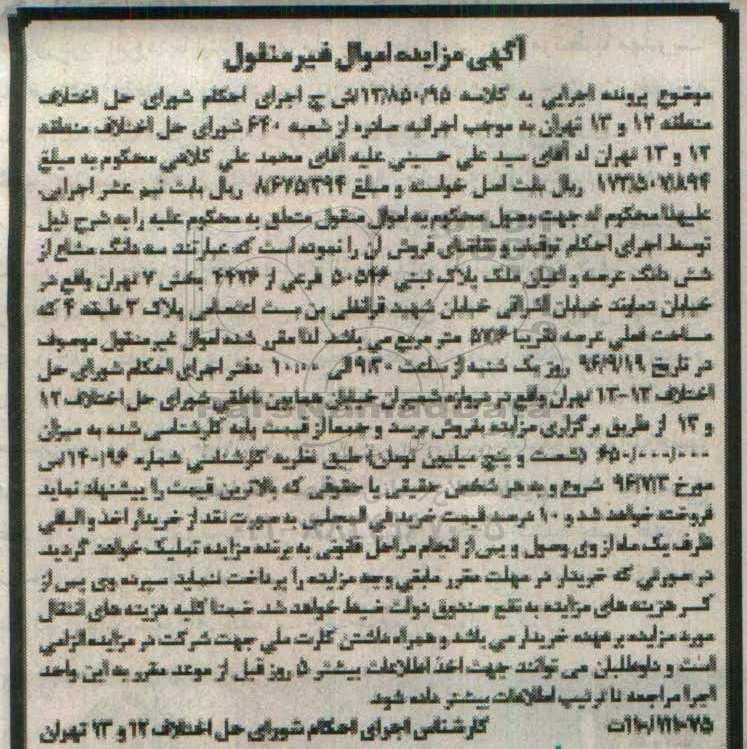 آگهی مزایده اموال غیر منقول
موضوع پرونده اجرایی به کلاسه ۱۳/۸۵۰/۹۵/ش ج اجرای احکام شورای حل اختلاف
منطقه ۱۲ و ۱۳ تهران به موجب اجرائیه صادره از شعبه ۶۴۰ شورای حل اختلاف منطقه
۱۲ و ۱۳ تهران له آقای سید علی حسینی علیه آقای محمد علی کلاهی محکوم به مبلغ
ریال بابت اصل خواسته و مبلغ ریال بابت نیم عشر اجرایی،
علیهذا محکوم له جهت وصول محکوم به اموال منقول متعلق به محکوم علیه را به شرح ذیل
توسط اجرای احکام توقیف و تقاضای فروش آن را نموده است که عبارتند سه دانگ مشاع از
شش دانگ عرصه و اعیان ملک پلاک ثبتی فرعی از بخش ۷ تهران واقع در
خیابان دماوند خیابان اشراقی خیابان شهید بن بست اعتصامی پلاک ۳ طبقه ۴ که
مساحت فعلی عرصه تقریبا متر مربع می باشد لذا مقرر شده اموال غیرمنقول موصوف
در تاریخ ۹۶/۹/۱۹ روز یک شنبه از ساعت ۹:۳۰ الی ۱۰:۰۰ دفتر اجرای احکام شورای حل
اختلاف ۱۲-۱۳ تهران واقع در دروازه شمیران خیابان همایون ناطقی شورای حل اختلاف ۱۲
و ۱۳ از طریق برگزاری مزایده بفروش برسد و جمعا از قیمت پایه کارشناسی شده به میزان
۶۵۰/۰۰۰/۰۰۰ (شصت و پنج میلیون تومان) طبق نظریه کارشناسی شماره
مورخ ۹۶/۷/۳ شروع و به هر شخص حقیقی یا حقوقی که بالاترین قیمت را پیشنهاد نماید
فروخته خواهد شد و ۱۰ درصد قیمت خرید فی المجلس به صورت نقد از خریدار اخذ و الباقی
ظرف یک ماه از وی وصول و پس از انجام مراحل قانونی به برنده مزایده تملیک خواهد گردید.
در صورتی که خریدار در مهلت مقرر مابقی وجه مزایده را پرداخت ننماید سپرده وی پس از
کسر هزینه های مزایده به نفع صندوق دولت ضبط خواهد شد. ضمنا کلیه هزینه های انتقال
مورد مزایده بر عهده خریدار می باشد و همراه داشتن کارت ملی جهت شرکت در مزایده الزامی
است و داوطلبان می توانند جهت اخذ اطلاعات بیشتر ۵ روز قبل از موعد مقرر به این واحد
اجرا مراجعه تا ترتیب اطلاعات بیشتر داده شود.
کارشناس اجرای احکام شورای حل اختلاف ۱۲ و ۱۳ تهران
ParsNamadData